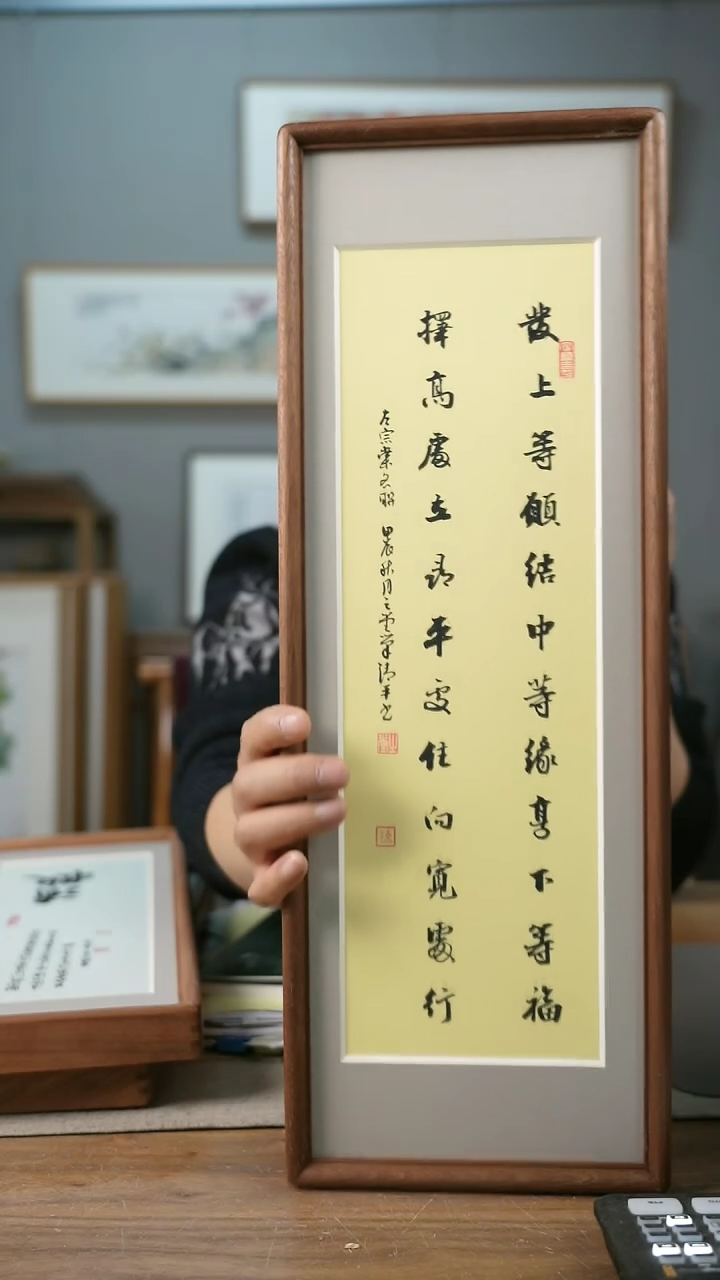 發上等願結中等緣享下等福
擇高處立尋平處住向寬處行
左宗棠名聯 甲辰秋月